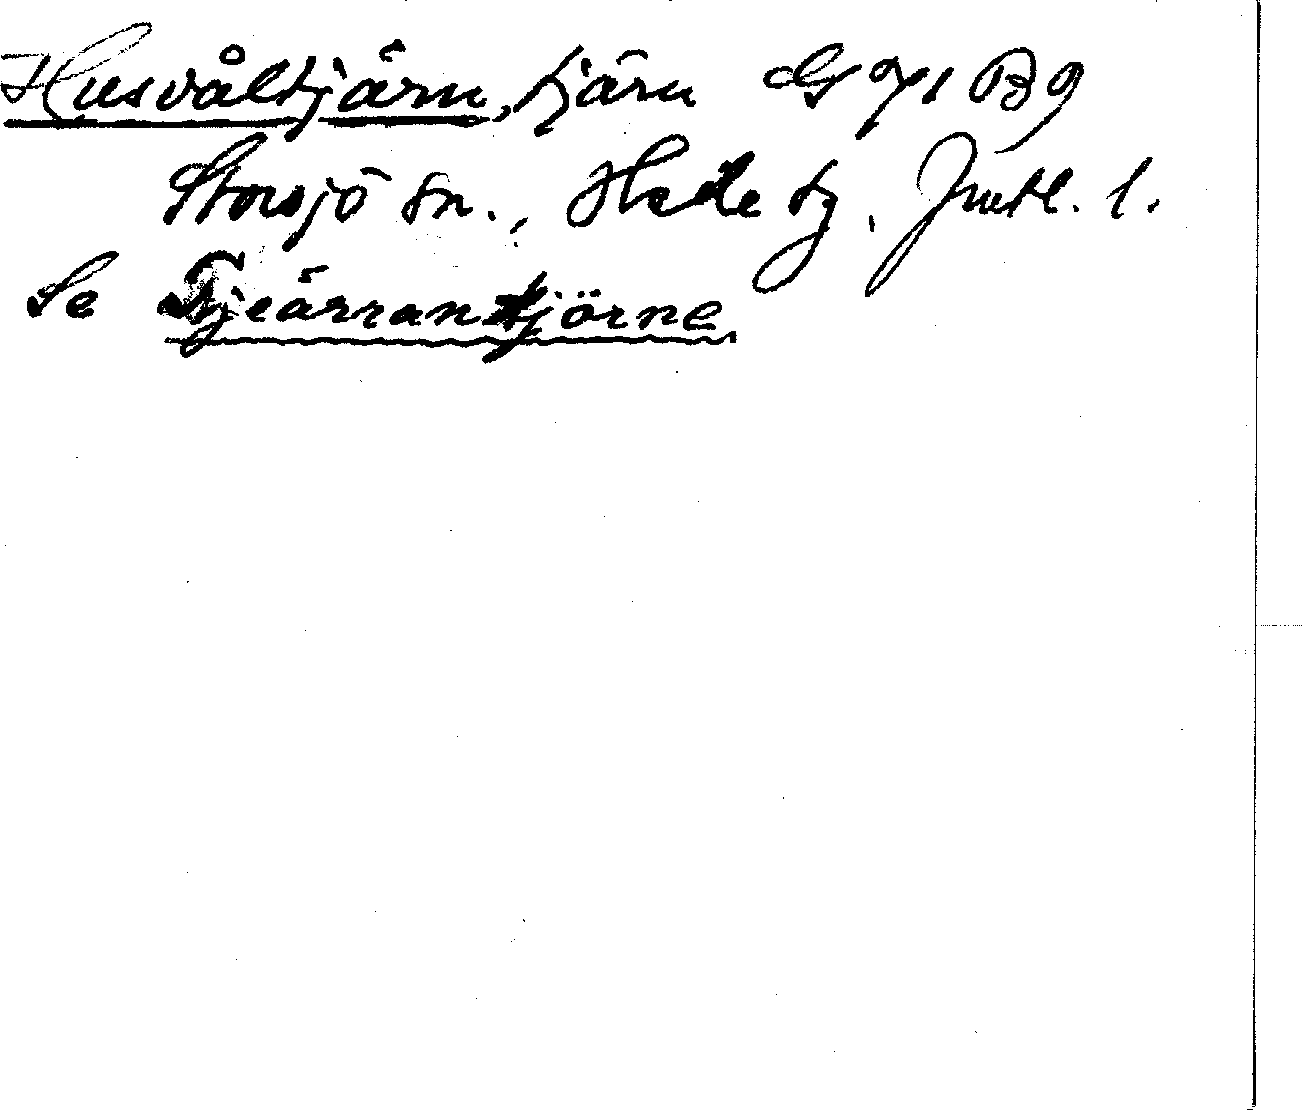 Husvåltjärn, tjärn G 071 B 9
Storsjö sn., Hede tg, Jmtl. l.
Se Tjeårrantjörne